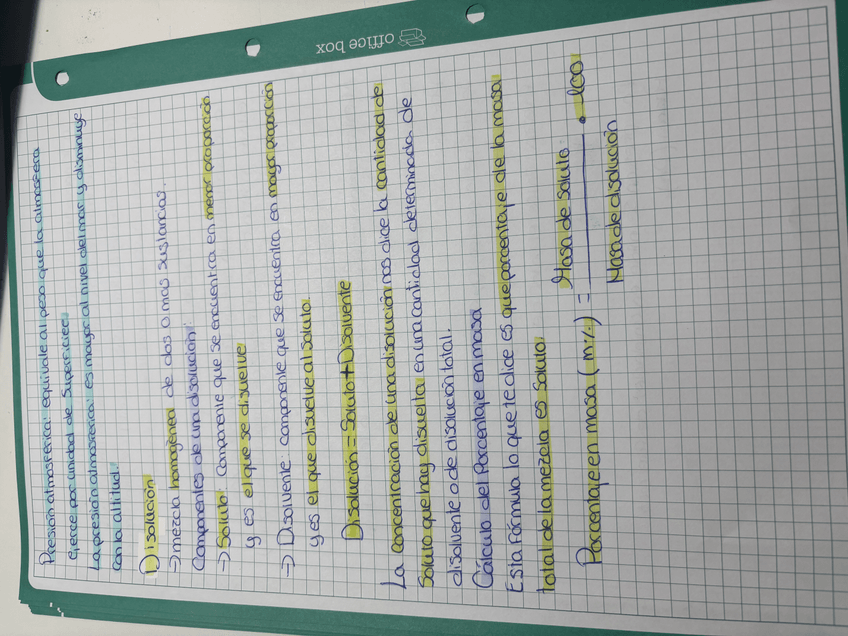 office box
Presión atmosférica: equivale al peso que la atmosfera
ejerce por unidad de superficie.
La presión atmosferica: es mayor al nivel del mar y disminuye
con la altitud.
Disolución
→ mezcla homogénea de dos o mas sustancias.
Componentes de una disolución:
→ Soluto: Componente que se encuentra en menor proporción
y es el que se disuelve
→ Disolvente: componente que se encuentra en mayor proporción
y es el que disuelve al soluto.
Disolución = Soluto + Disolvente
La concentración de una disolución nos dice la cantidad de
Soluto que hay disuelta en una cantidad determinada de
disolvente o de disolución total.
Cálculo del Porcentaje en masa
Esta formula lo que te dice es que porcentaje de la masa
total de la mezcla es soluto.
Porcentaje en masa (m%) = Masa de soluto · 100
Masa de disolución